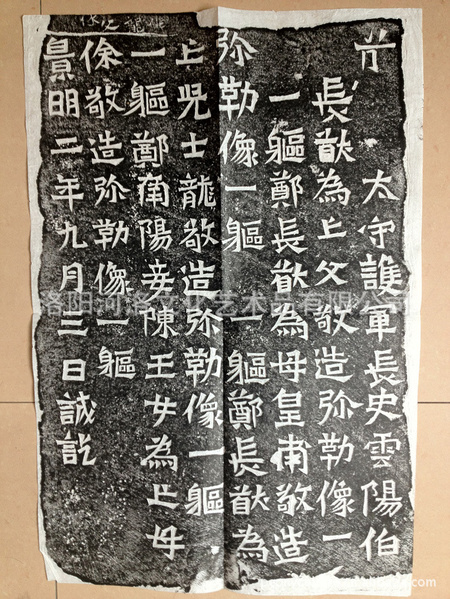 太守護軍長史雲陽伯
長猷為亡父敬造弥勒像一
一軀鄭長猷為母皇甫敬造
弥勒像一軀 一軀鄭長猷為
亡児士龍敬造弥勒像一軀
一軀鄭南陽妾陳王女為亡母
徐敬造弥勒像一軀
景明二年九月三日誠訖
洛阳河洛文化艺术品有限公司